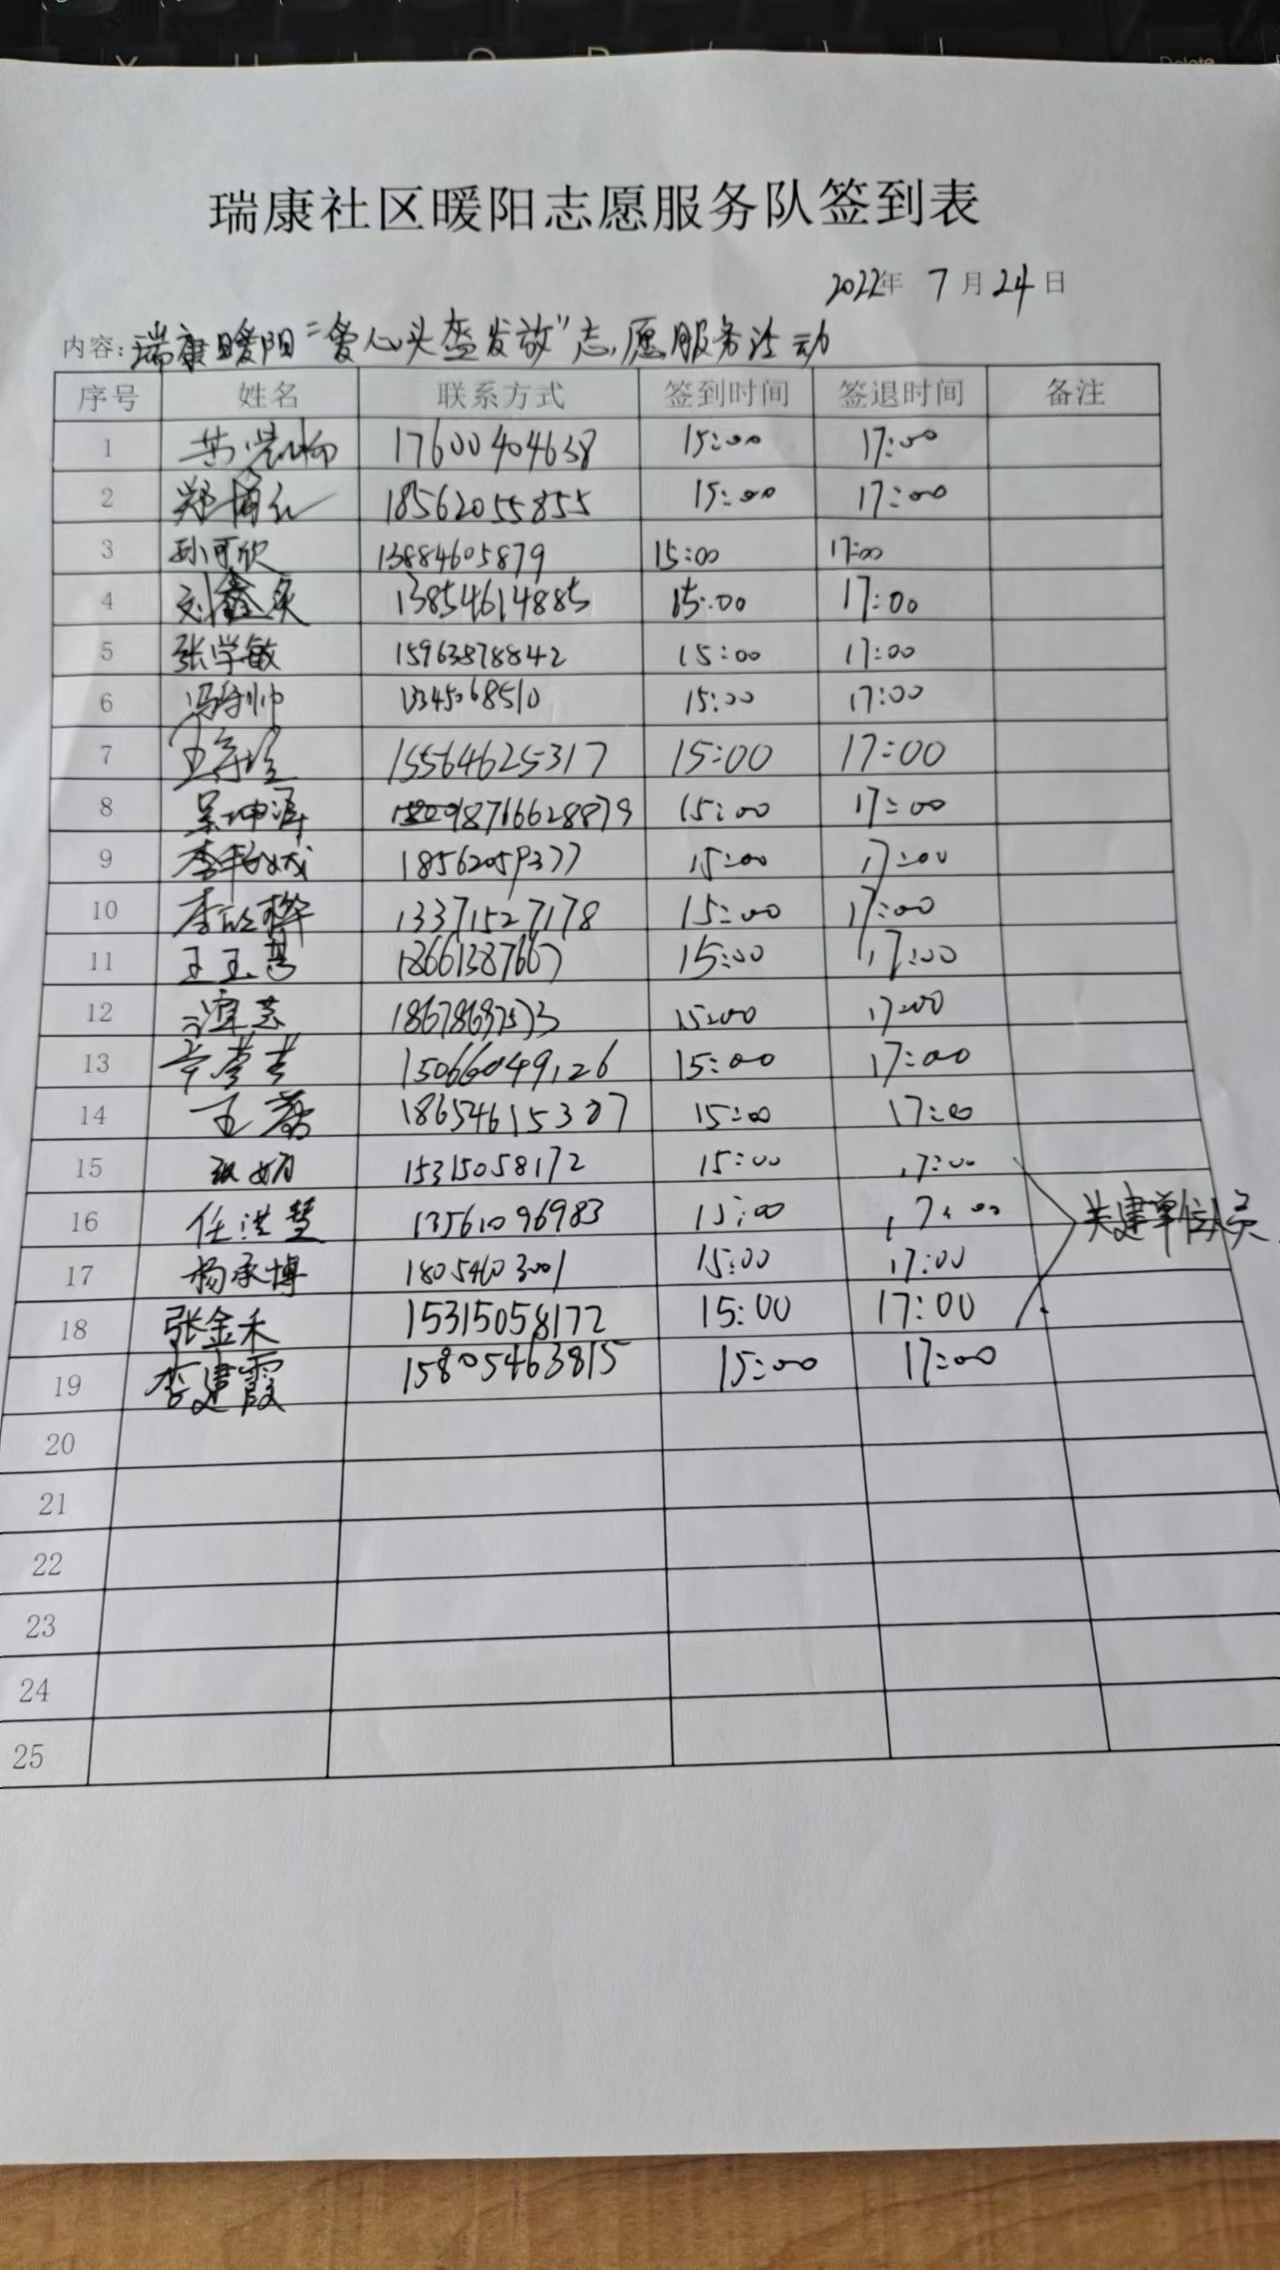 瑞康社区暖阳志愿服务队签到表
2022年 7月24日
内容：瑞康暖阳“爱心头盔发放”志愿服务活动
序号 姓名 联系方式 签到时间 签退时间 备注
1 17600404638 15:00 17:00
2 郑 18562055855 15:00 17:00
3 孙可欣 13884605879 15:00 17:00
4 刘鑫 13854614885 15:00 17:00
5 张学敏 15963878842 15:00 17:00
6 冯 15:00 17:00
7 王 15564625317 15:00 17:00
8 吴坤 15:00 17:00
9 李 18562059377 15:00 17:00
10 李 13371527178 15:00 17:00
11 王玉 18661387667 15:00 17:00
12 15:00 17:00
13 15066049126 15:00 17:00
14 王 18654615307 15:00 17:00
15 15315058172 15:00 17:00
16 任洪慧 13561096983 15:00 17:00 共建单位人员
17 杨承博 18054603001 15:00 17:00
18 张金禾 15315058172 15:00 17:00
19 李建霞 15805463815 15:00 17:00
20
21
22
23
24
25